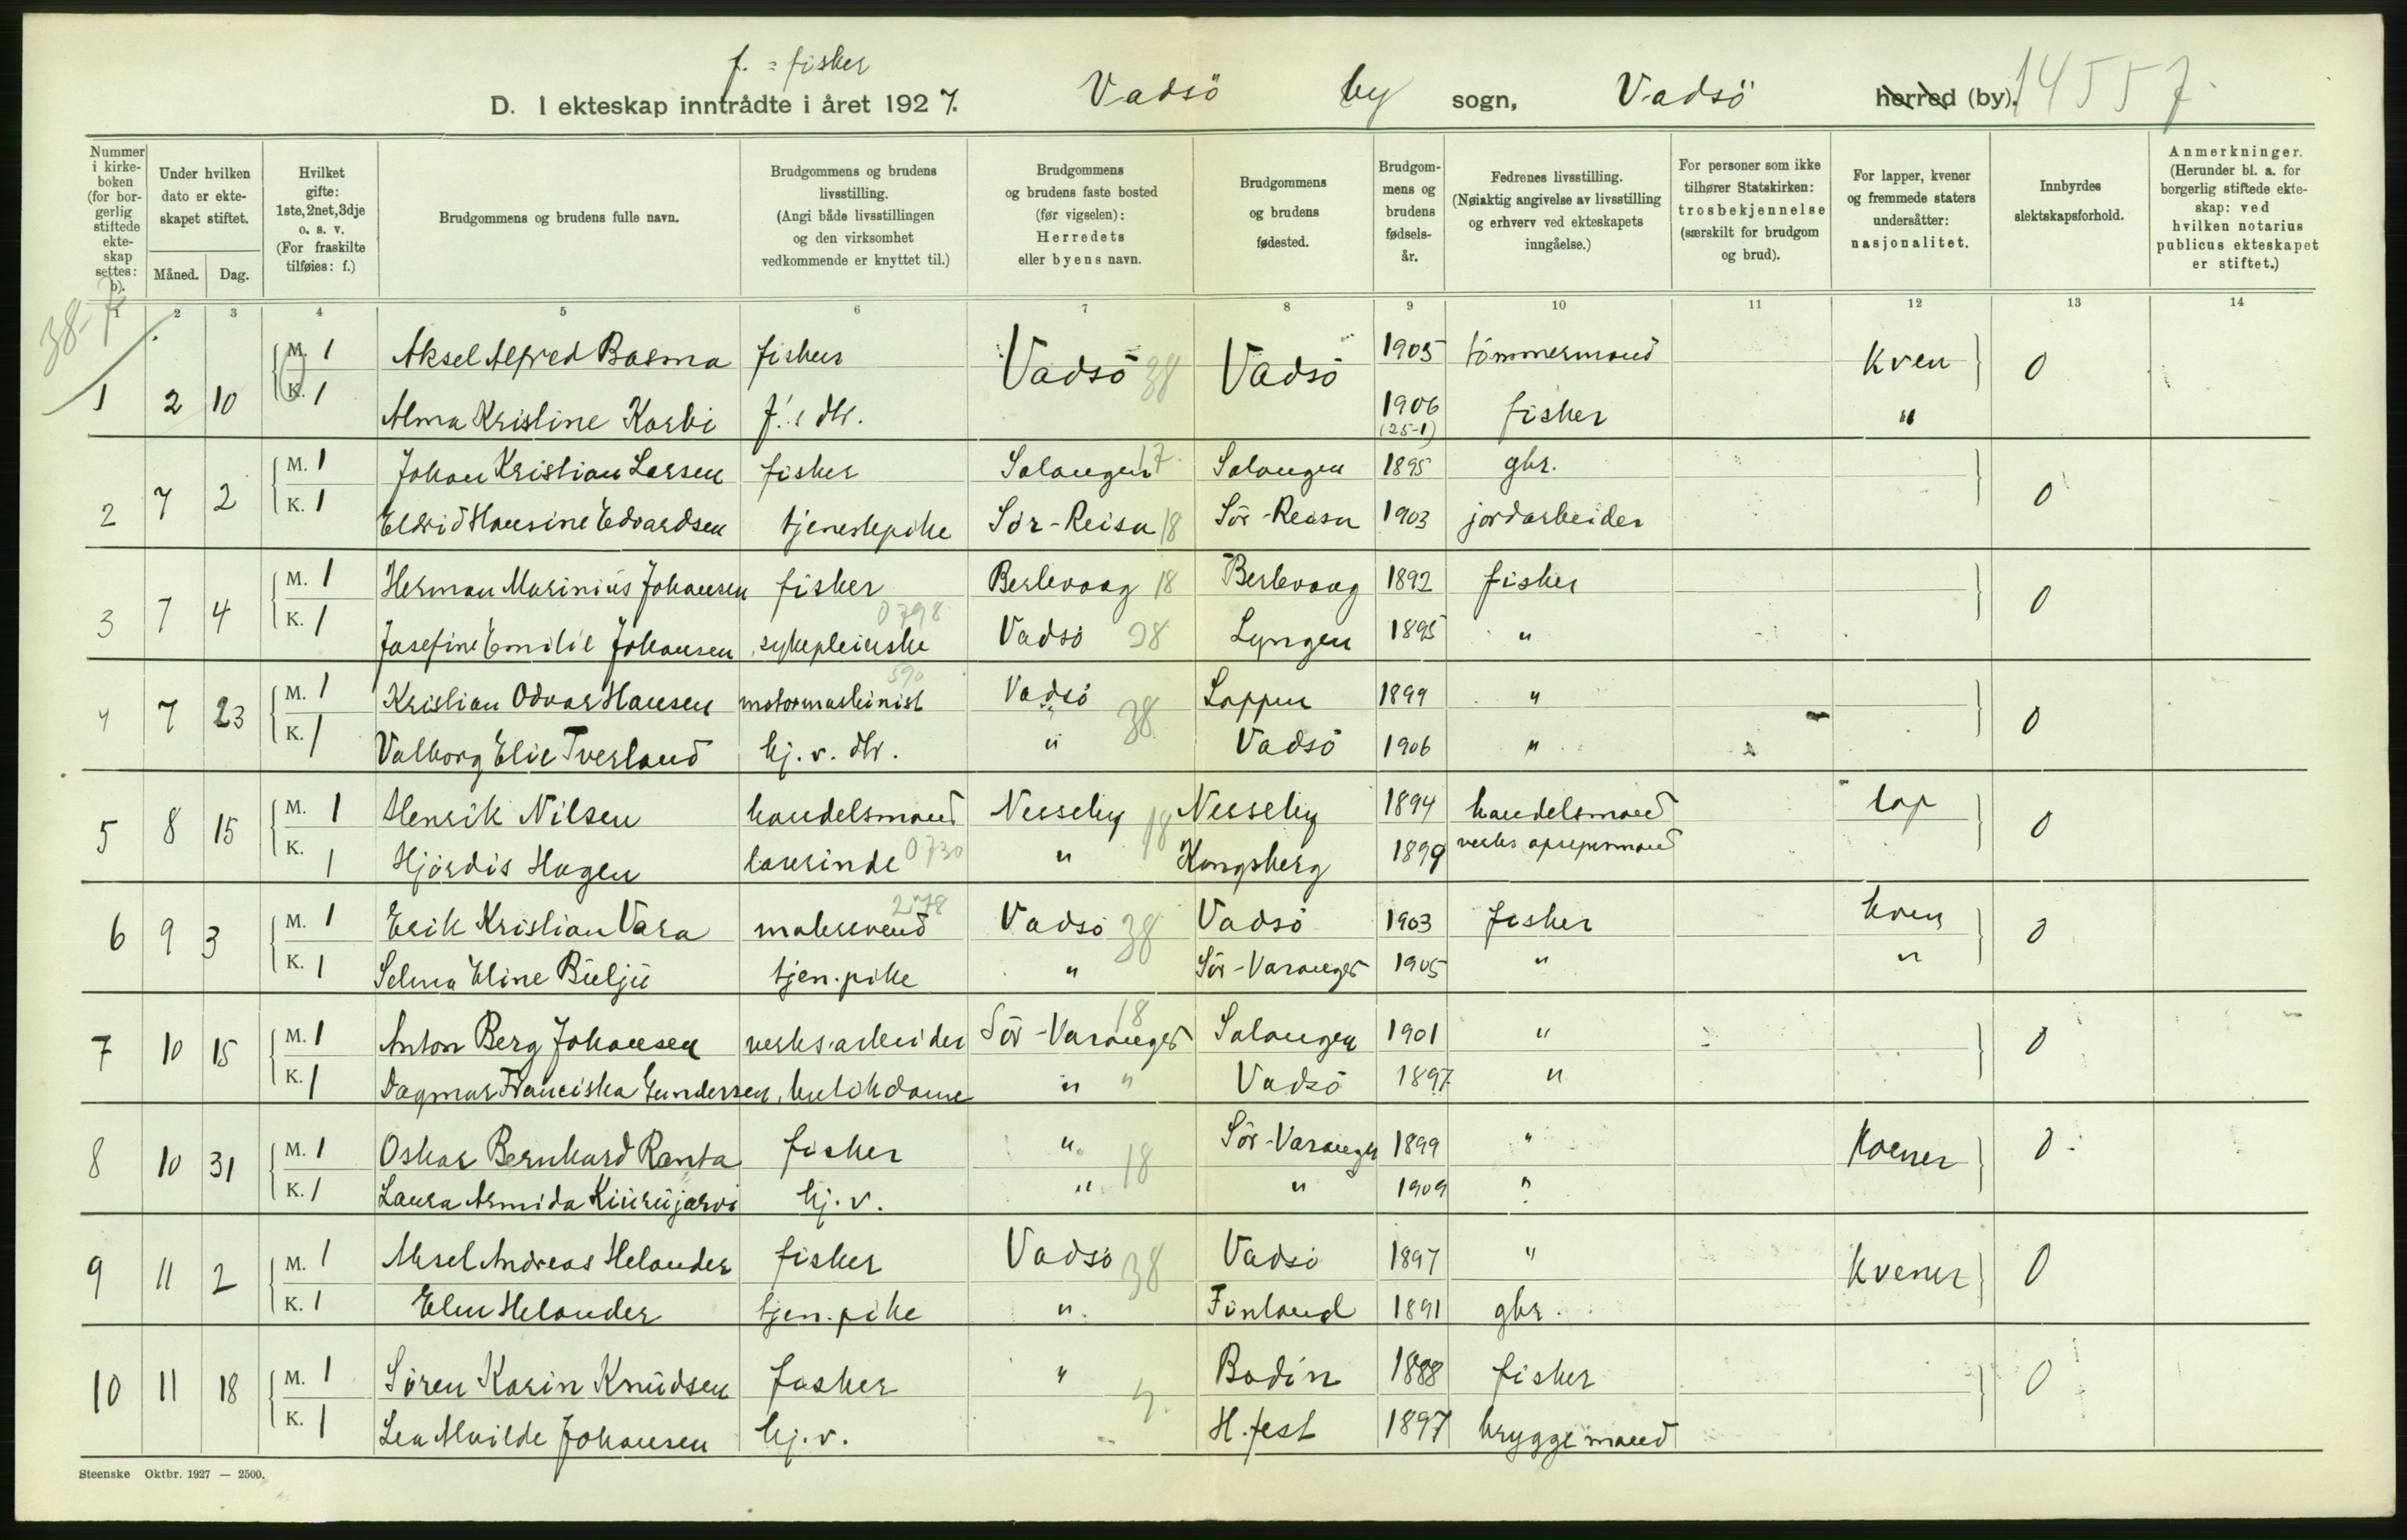 f. = fisker
D. I ekteskap inntrådte i året 1927. Vadsö by sogn, Vadsö herred (by). 14557.
Nummer i kirkeboken (for borgerlig stiftede ekteskap settes: b).
Under hvilken dato er ekteskapet stiftet.
Måned. Dag.
Hvilket gifte: 1ste, 2net, 3dje o. s. v. (For fraskilte tilføies: f.)
Brudgommens og brudens fulle navn.
Brudgommens og brudens livsstilling. (Angi både livsstillingen og den virksomhet vedkommende er knyttet til.)
Brudgommens og brudens faste bosted (før vigselen): Herredets eller byens navn.
Brudgommens og brudens fødested.
Brudgommens og brudens fødselsår.
Fedrenes livsstilling. (Nøiaktig angivelse av livsstilling og erhverv ved ekteskapets inngåelse.)
For personer som ikke tilhører Statskirken: trosbekjennelse (særskilt for brudgom og brud).
For lapper, kvener og fremmede staters undersåtter: nasjonalitet.
Innbyrdes slektskapsforhold.
Anmerkninger. (Herunder bl. a. for borgerlig stiftede ekteskap: ved hvilken notarius publicus ekteskapet er stiftet.)
1 2 3 4 5 6 7 8 9 10 11 12 13 14
M. 1 Aksel Alfred Basma fisker Vadsö 38 Vadsö 1905 tömmermand kven 0
1 2 10 K. 1 Alma Kristine Korbi f.'s dtr. 1906 (25-1) fisker "
M. 1 Johan Kristian Larsen fisker Salangen 17 Salangen 1895 gbr.
2 7 2 K. 1 Eldrid Hansine Edvardsen tjenestepike Sör-Reisa 18 Sör-Reisa 1903 jordarbeider 0
M. 1 Herman Marinius Johansen fisker Berlevaag 18 Berlevaag 1892 fisker
3 7 4 K. 1 Josefine Emilie Johansen sykepleierske 0798 Vadsö 38 Lyngen 1895 " 0
M. 1 Kristian Odvar Hansen motormaskinist 590 Vadsö 38 Loppen 1899 "
4 7 23 K. 1 Valborg Elie Tverland hj. v. dtr. " Vadsö 1906 " 0
M. 1 Henrik Nilsen handelsmand Nesseby 18 Nesseby 1894 handelsmand lap
5 8 15 K. 1 Hjördis Hagen lærerinde 0730 " Kongsberg 1899 verks opsynsmand 0
M. 1 Erik Kristian Vara malersvend 2778 Vadsö 38 Vadsö 1903 fisker kven
6 9 3 K. 1 Selma Eline Bieljü tjen. pike " Sör-Varanger 1905 " " 0
M. 1 Anton Berg Johansen verks.arbeider Sör-Varanger 18 Salangen 1901 "
7 10 15 K. 1 Dagmar Franciska Gundersen, butikdame " " Vadsö 1897 " 0
M. 1 Oskar Bernhard Ranta fisker " 18 Sör-Varanger 1899 " Kvener
8 10 31 K. 1 Laura Armida Kiürüjärvi hj. v. " " 1909 " 0
M. 1 Aksel Andreas Helander fisker Vadsö 38 Vadsö 1897 " Kvener
9 11 2 K. 1 Elen Helander tjen. pike " Finland 1891 gbr. 0
M. 1 Sören Karin Knudsen fisker " Bodin 1888 fisker
10 11 18 K. 1 Lea Alvilde Johansen hj. v. " H.fest 1897 bryggemand 0
Steenske Oktbr. 1927 — 2500.